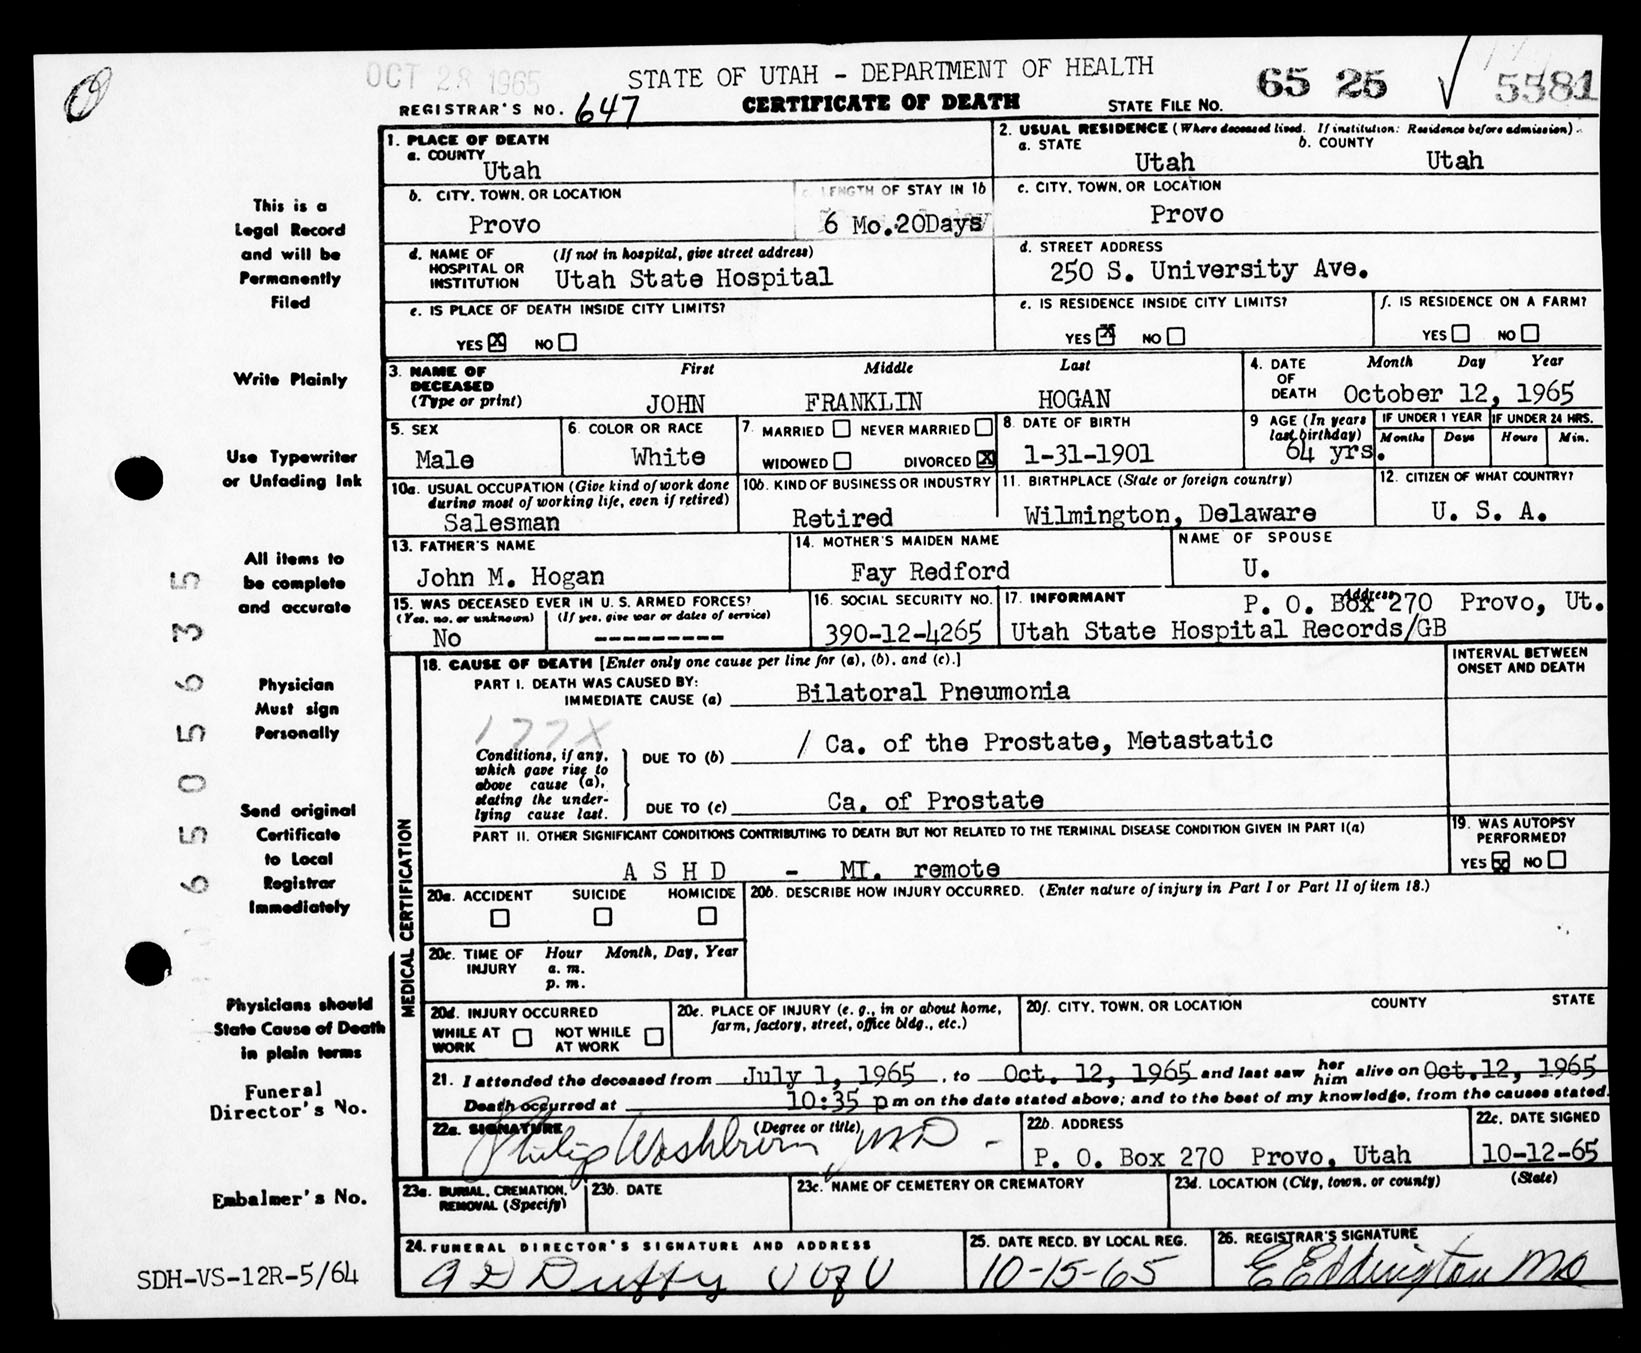 OCT 28 1965
STATE OF UTAH - DEPARTMENT OF HEALTH
65 25 √ 5581
REGISTRAR'S NO. 647 CERTIFICATE OF DEATH STATE FILE NO.
1. PLACE OF DEATH
a. COUNTY
Utah
2. USUAL RESIDENCE (Where deceased lived. If institution: Residence before admission)
a. STATE b. COUNTY
Utah Utah
b. CITY, TOWN, OR LOCATION
Provo
c. LENGTH OF STAY IN 1b
6 Mo.20Days
c. CITY, TOWN, OR LOCATION
Provo
d. NAME OF HOSPITAL OR INSTITUTION (If not in hospital, give street address)
Utah State Hospital
d. STREET ADDRESS
250 S. University Ave.
e. IS PLACE OF DEATH INSIDE CITY LIMITS?
YES X NO
e. IS RESIDENCE INSIDE CITY LIMITS?
YES X NO
f. IS RESIDENCE ON A FARM?
YES NO
3. NAME OF DECEASED (Type or print) First Middle Last
JOHN FRANKLIN HOGAN
4. DATE OF DEATH Month Day Year
October 12, 1965
5. SEX
Male
6. COLOR OR RACE
White
7. MARRIED NEVER MARRIED
WIDOWED DIVORCED X
8. DATE OF BIRTH
1-31-1901
9 AGE (In years last birthday)
64 yrs.
IF UNDER 1 YEAR
Months Days
IF UNDER 24 HRS.
Hours Min.
10a. USUAL OCCUPATION (Give kind of work done during most of working life, even if retired)
Salesman
10b. KIND OF BUSINESS OR INDUSTRY
Retired
11. BIRTHPLACE (State or foreign country)
Wilmington, Delaware
12. CITIZEN OF WHAT COUNTRY?
U. S. A.
13. FATHER'S NAME
John M. Hogan
14. MOTHER'S MAIDEN NAME
Fay Redford
NAME OF SPOUSE
U.
15. WAS DECEASED EVER IN U. S. ARMED FORCES?
(Yes, no, or unknown) (If yes, give war or dates of service)
No ---------
16. SOCIAL SECURITY NO.
390-12-4265
17. INFORMANT Address
P. O. Box 270 Provo, Ut.
Utah State Hospital Records/GB
MEDICAL CERTIFICATION
18. CAUSE OF DEATH [Enter only one cause per line for (a), (b), and (c).]
INTERVAL BETWEEN ONSET AND DEATH
PART I. DEATH WAS CAUSED BY:
IMMEDIATE CAUSE (a) Bilatoral Pneumonia
177X
Conditions, if any, which gave rise to above cause (a), stating the underlying cause last.
DUE TO (b) / Ca. of the Prostate, Metastatic
DUE TO (c) Ca. of Prostate
PART II. OTHER SIGNIFICANT CONDITIONS CONTRIBUTING TO DEATH BUT NOT RELATED TO THE TERMINAL DISEASE CONDITION GIVEN IN PART I(a)
A S H D - MI. remote
19. WAS AUTOPSY PERFORMED?
YES X NO
20a. ACCIDENT SUICIDE HOMICIDE
20b. DESCRIBE HOW INJURY OCCURRED. (Enter nature of injury in Part I or Part II of item 18.)
20c. TIME OF INJURY Hour Month, Day, Year
a. m.
p. m.
20d. INJURY OCCURRED
WHILE AT WORK NOT WHILE AT WORK
20e. PLACE OF INJURY (e. g., in or about home, farm, factory, street, office bldg., etc.)
20f. CITY, TOWN, OR LOCATION COUNTY STATE
21. I attended the deceased from July 1, 1965, to Oct. 12, 1965 and last saw her him alive on Oct.12, 1965
Death occurred at 10:35 p m on the date stated above; and to the best of my knowledge, from the causes stated.
22a. SIGNATURE (Degree or title)
Philip Washburn, MD -
22b. ADDRESS
P. O. Box 270 Provo, Utah
22c. DATE SIGNED
10-12-65
23a. BURIAL, CREMATION, REMOVAL (Specify)
23b. DATE
23c. NAME OF CEMETERY OR CREMATORY
23d. LOCATION (City, town, or county) (State)
24. FUNERAL DIRECTOR'S SIGNATURE AND ADDRESS
A D Duffy U of U
25. DATE RECD. BY LOCAL REG.
10-15-65
26. REGISTRAR'S SIGNATURE
E Eddington MD
This is a
Legal Record
and will be
Permanently
Filed
Write Plainly
Use Typewriter
or Unfading Ink
All items to
be complete
and accurate
Physician
Must sign
Personally
Send original
Certificate
to Local
Registrar
Immediately
Physicians should
State Cause of Death
in plain terms
Funeral
Director's No.
Embalmer's No.
SDH-VS-12R-5/64
6505635